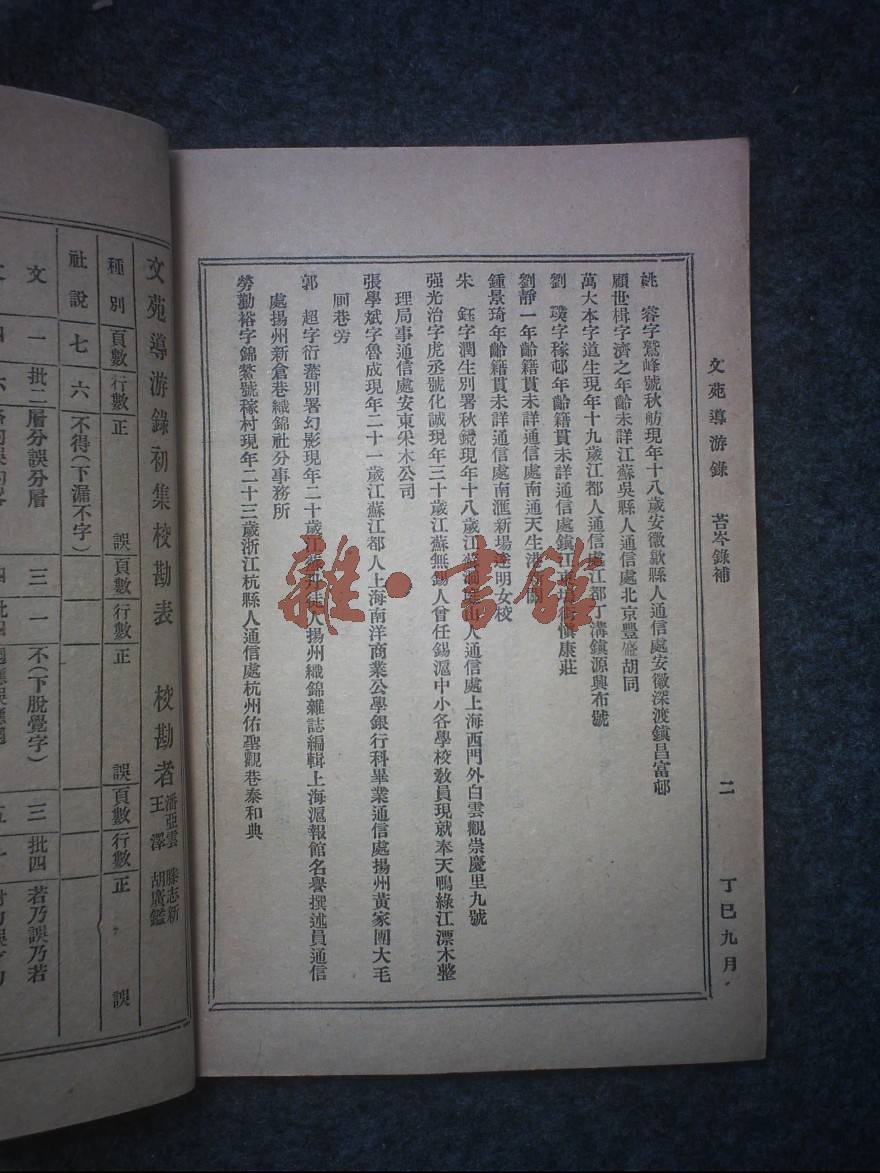 文苑導游錄 苔岑錄補 二 丁巳九月
姚 睿字鷲峰號秋舫現年十八歲安徽歙縣人通信處安徽深渡鎮昌富邨
顧世楫字濟之年齡未詳江蘇吳縣人通信處北京豐盛胡同
萬大本字道生現年十九歲江都人通信處江都丁溝鎮源興布號
劉 璞字稼邨年齡籍貫未詳通信處鎮江 街愼康莊
劉靜一年齡籍貫未詳通信處南通天生港
鍾景琦年齡籍貫未詳通信處南滙新場達明女校
朱 鈺字潤生別署秋鏡現年十八歲江蘇 山人通信處上海西門外白雲觀崇慶里九號
强光治字虎丞號化誠現年三十歲江蘇無錫人曾任錫滬中小各學校敎員現就奉天鴨綠江漂木整
理局事通信處安東采木公司
張學斌字魯成現年二十一歲江蘇江都人上海南洋商業公學銀行科畢業通信處揚州黃家團大毛
厠巷旁
郭 超字衍蕃別署幻影現年二十歲江蘇丹徒人揚州織錦雜誌編輯上海滬報館名譽撰述員通信
處揚州新倉巷織錦社分事務所
勞勤裕字錦鰲號稼村現年二十三歲浙江杭縣人通信處杭州佑聖觀巷泰和典
雜·書館
文苑導游錄初集校勘表 校勘者 潘亞雲 滕志新
王 澤 胡廣鑑
種別 頁數 行數 正 誤 頁數 行數 正 誤 頁數 行數 正 誤
社說 七 六 不得(下漏不字)
文 一 批二 層分誤分層 三 一 不(下脫覺字) 三 批四 若乃誤乃若